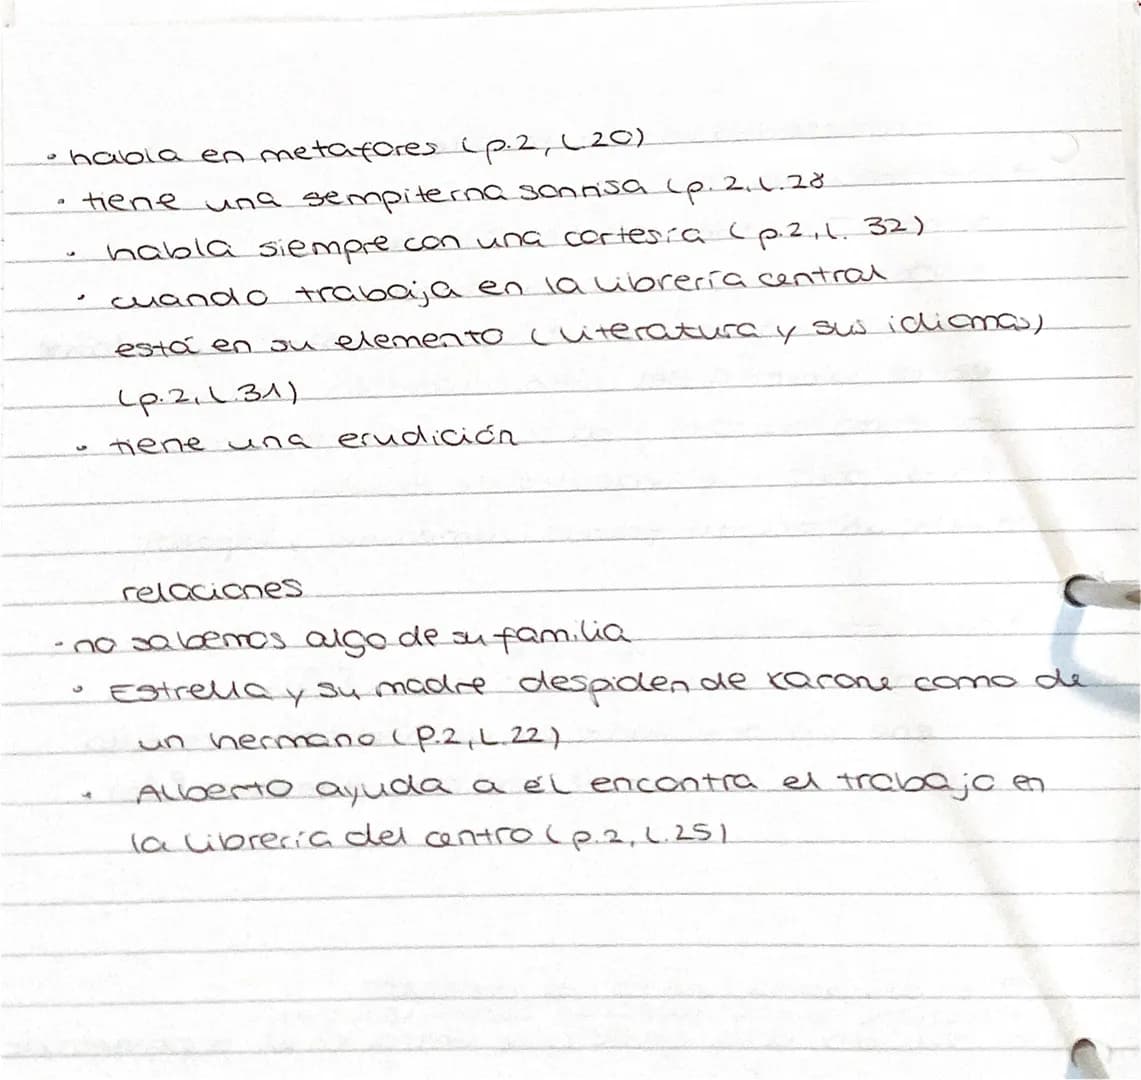 • habla en metafores (p.2, l.20)
• tiene una sempiterna sonrisa (p.2, l.28
• habla siempre con una cortesía (p.2, l. 32)
• cuando trabaja en la librería central
está en su elemento (literatura y sus idiomas)
(p.2, l.31)
• tiene una erudición
relaciones
- no sabemos algo de su familia
• Estrella y su madre despiden de Karone como de
un hermano (p.2, L.22)
• Alberto ayuda a él encontra el trabajo en
la librería del centro (p.2, l.25)